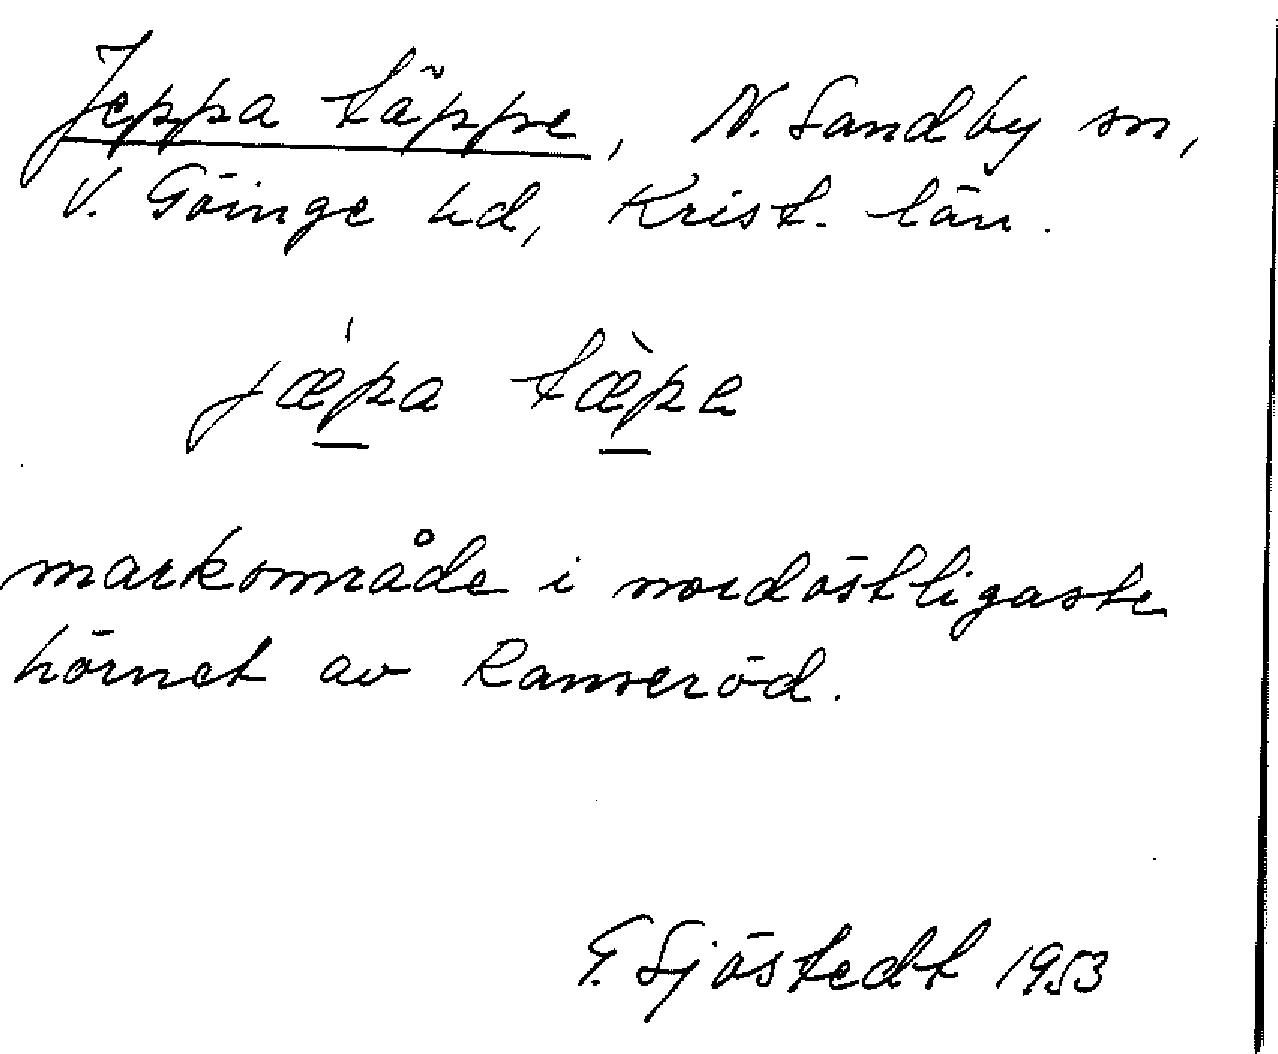 Jeppa täppe, N. Sandby sn,
V. Göinge hd, Krist. län.
jǽpa tæ̀pe
markområde i nordöstligaste
hörnet av Ranseröd.
G. Sjöstedt 1953